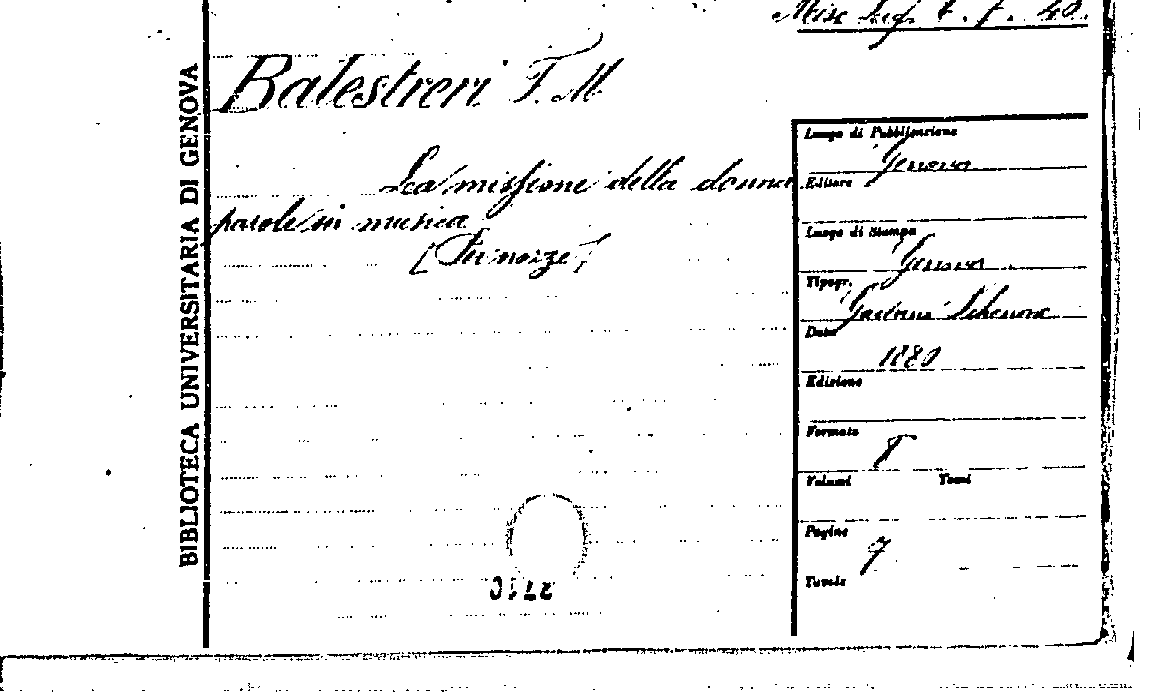 Misc Lig. 4. 7. 40.
BIBLIOTECA UNIVERSITARIA DI GENOVA
Balestreri F. M
La missione della donna
parole in musica
[Per nozze]
Luogo di Pubblicazione
Genova
Editore
Luogo di Stampa
Genova
Tipogr.
Gaetano Schenone
Data
1880
Edizione
Formato
8
Volumi Tomi
Pagine
7
Tavole